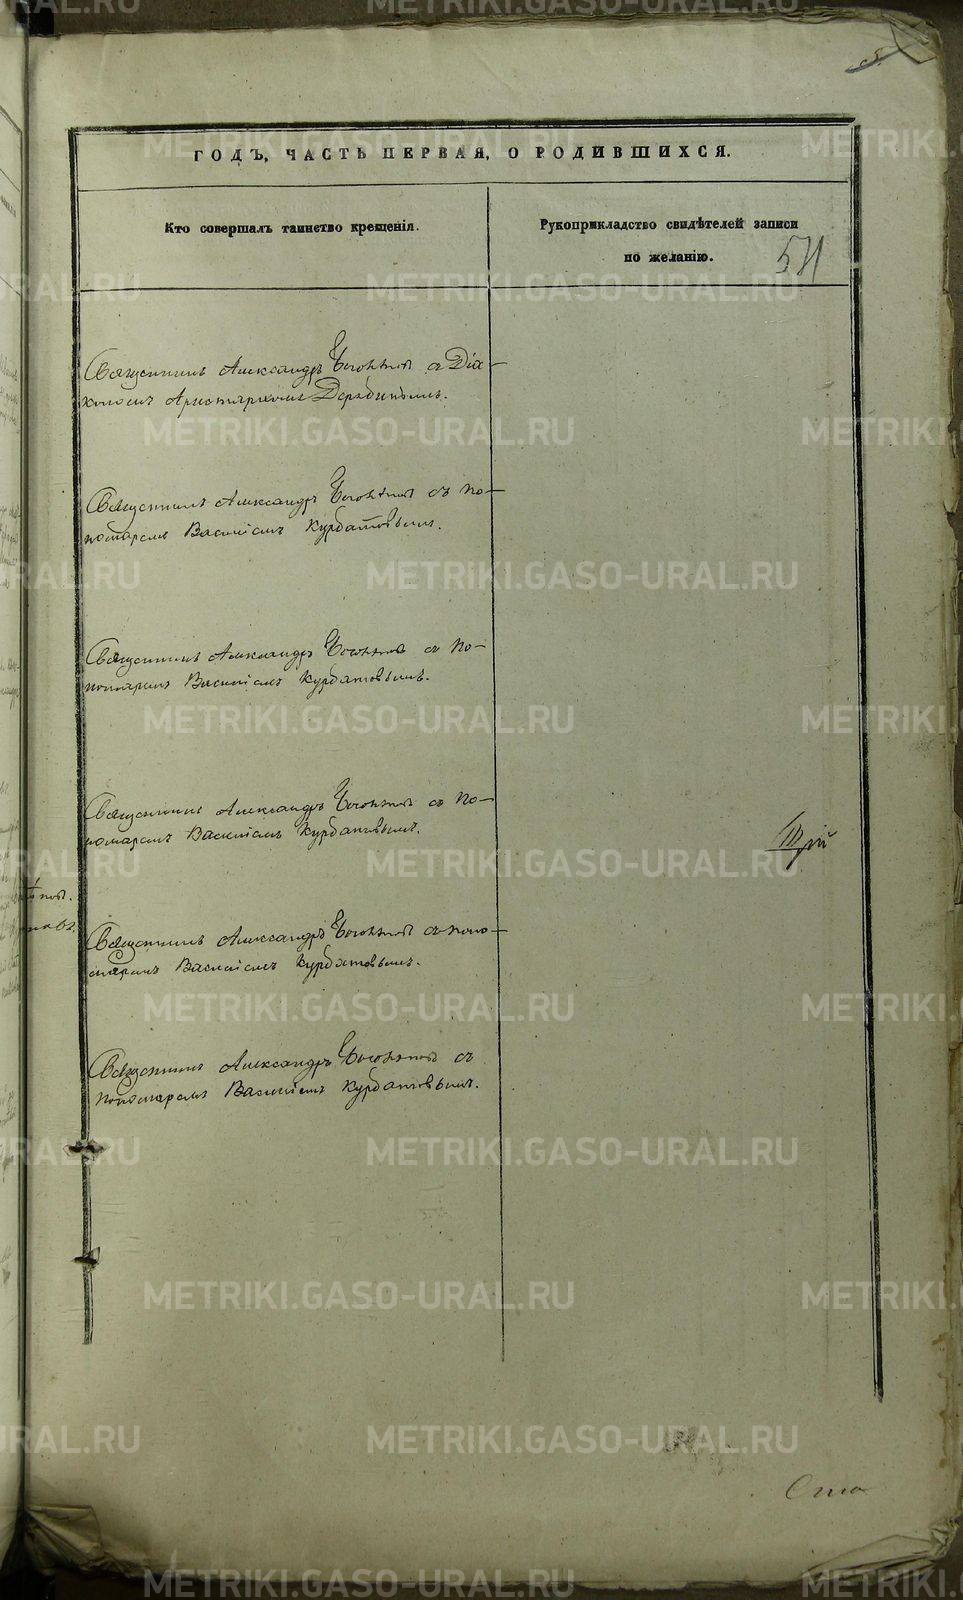 ГОДЪ, ЧАСТЬ ПЕРВАЯ, О РОДИВШИХСЯ.
Кто совершалъ таинство крещенія.
Рукоприкладство свидѣтелей записи
по желанію.
511
Священникъ Александръ съ Діа-
кономъ Аристархомъ
Священникъ Александръ съ по-
номаремъ Василіемъ Курбатовымъ.
Священникъ Александръ съ По-
номаремъ Василіемъ Курбатовымъ.
Священникъ Александръ съ По-
номаремъ Василіемъ Курбатовымъ.
Священникъ Александръ съ поно-
маремъ Василіемъ Курбатовымъ.
Священникъ Александръ съ
пономаремъ Василіемъ Курбатовымъ.
METRIKI.GASO-URAL.RU